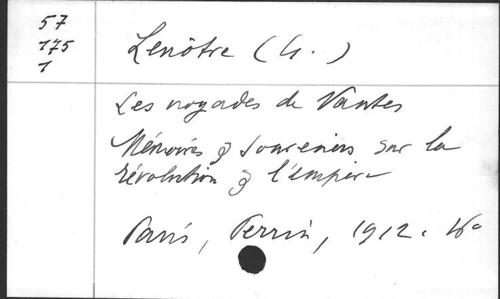 57
175
1
Lenôtre (G.)
Les noyades de Nantes
Mémoires & Souvenirs sur la
révolution & l'empire
Paris, Perrin, 1912.